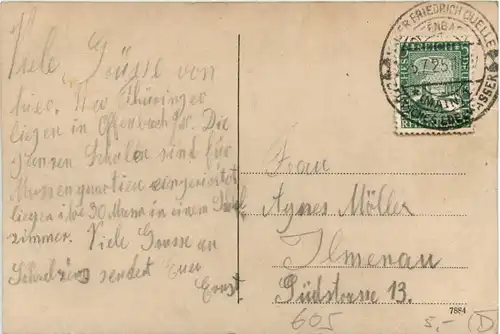 Viele Grüsse von
hier. Wir Thüringer
liegen in Offenbach. Die
ganzen Schulen sind für
Massenquartier eingerichtet
liegen 30 Mann in einem
zimmer. Viele Grüsse an
sendet Euer
Ernst
FRIEDRICH QUELLE
5.7.25
(MAIN)
REICH
Frau
Agnes Möller
Ilmenau
Südstrasse 13.
7884
605
5,-